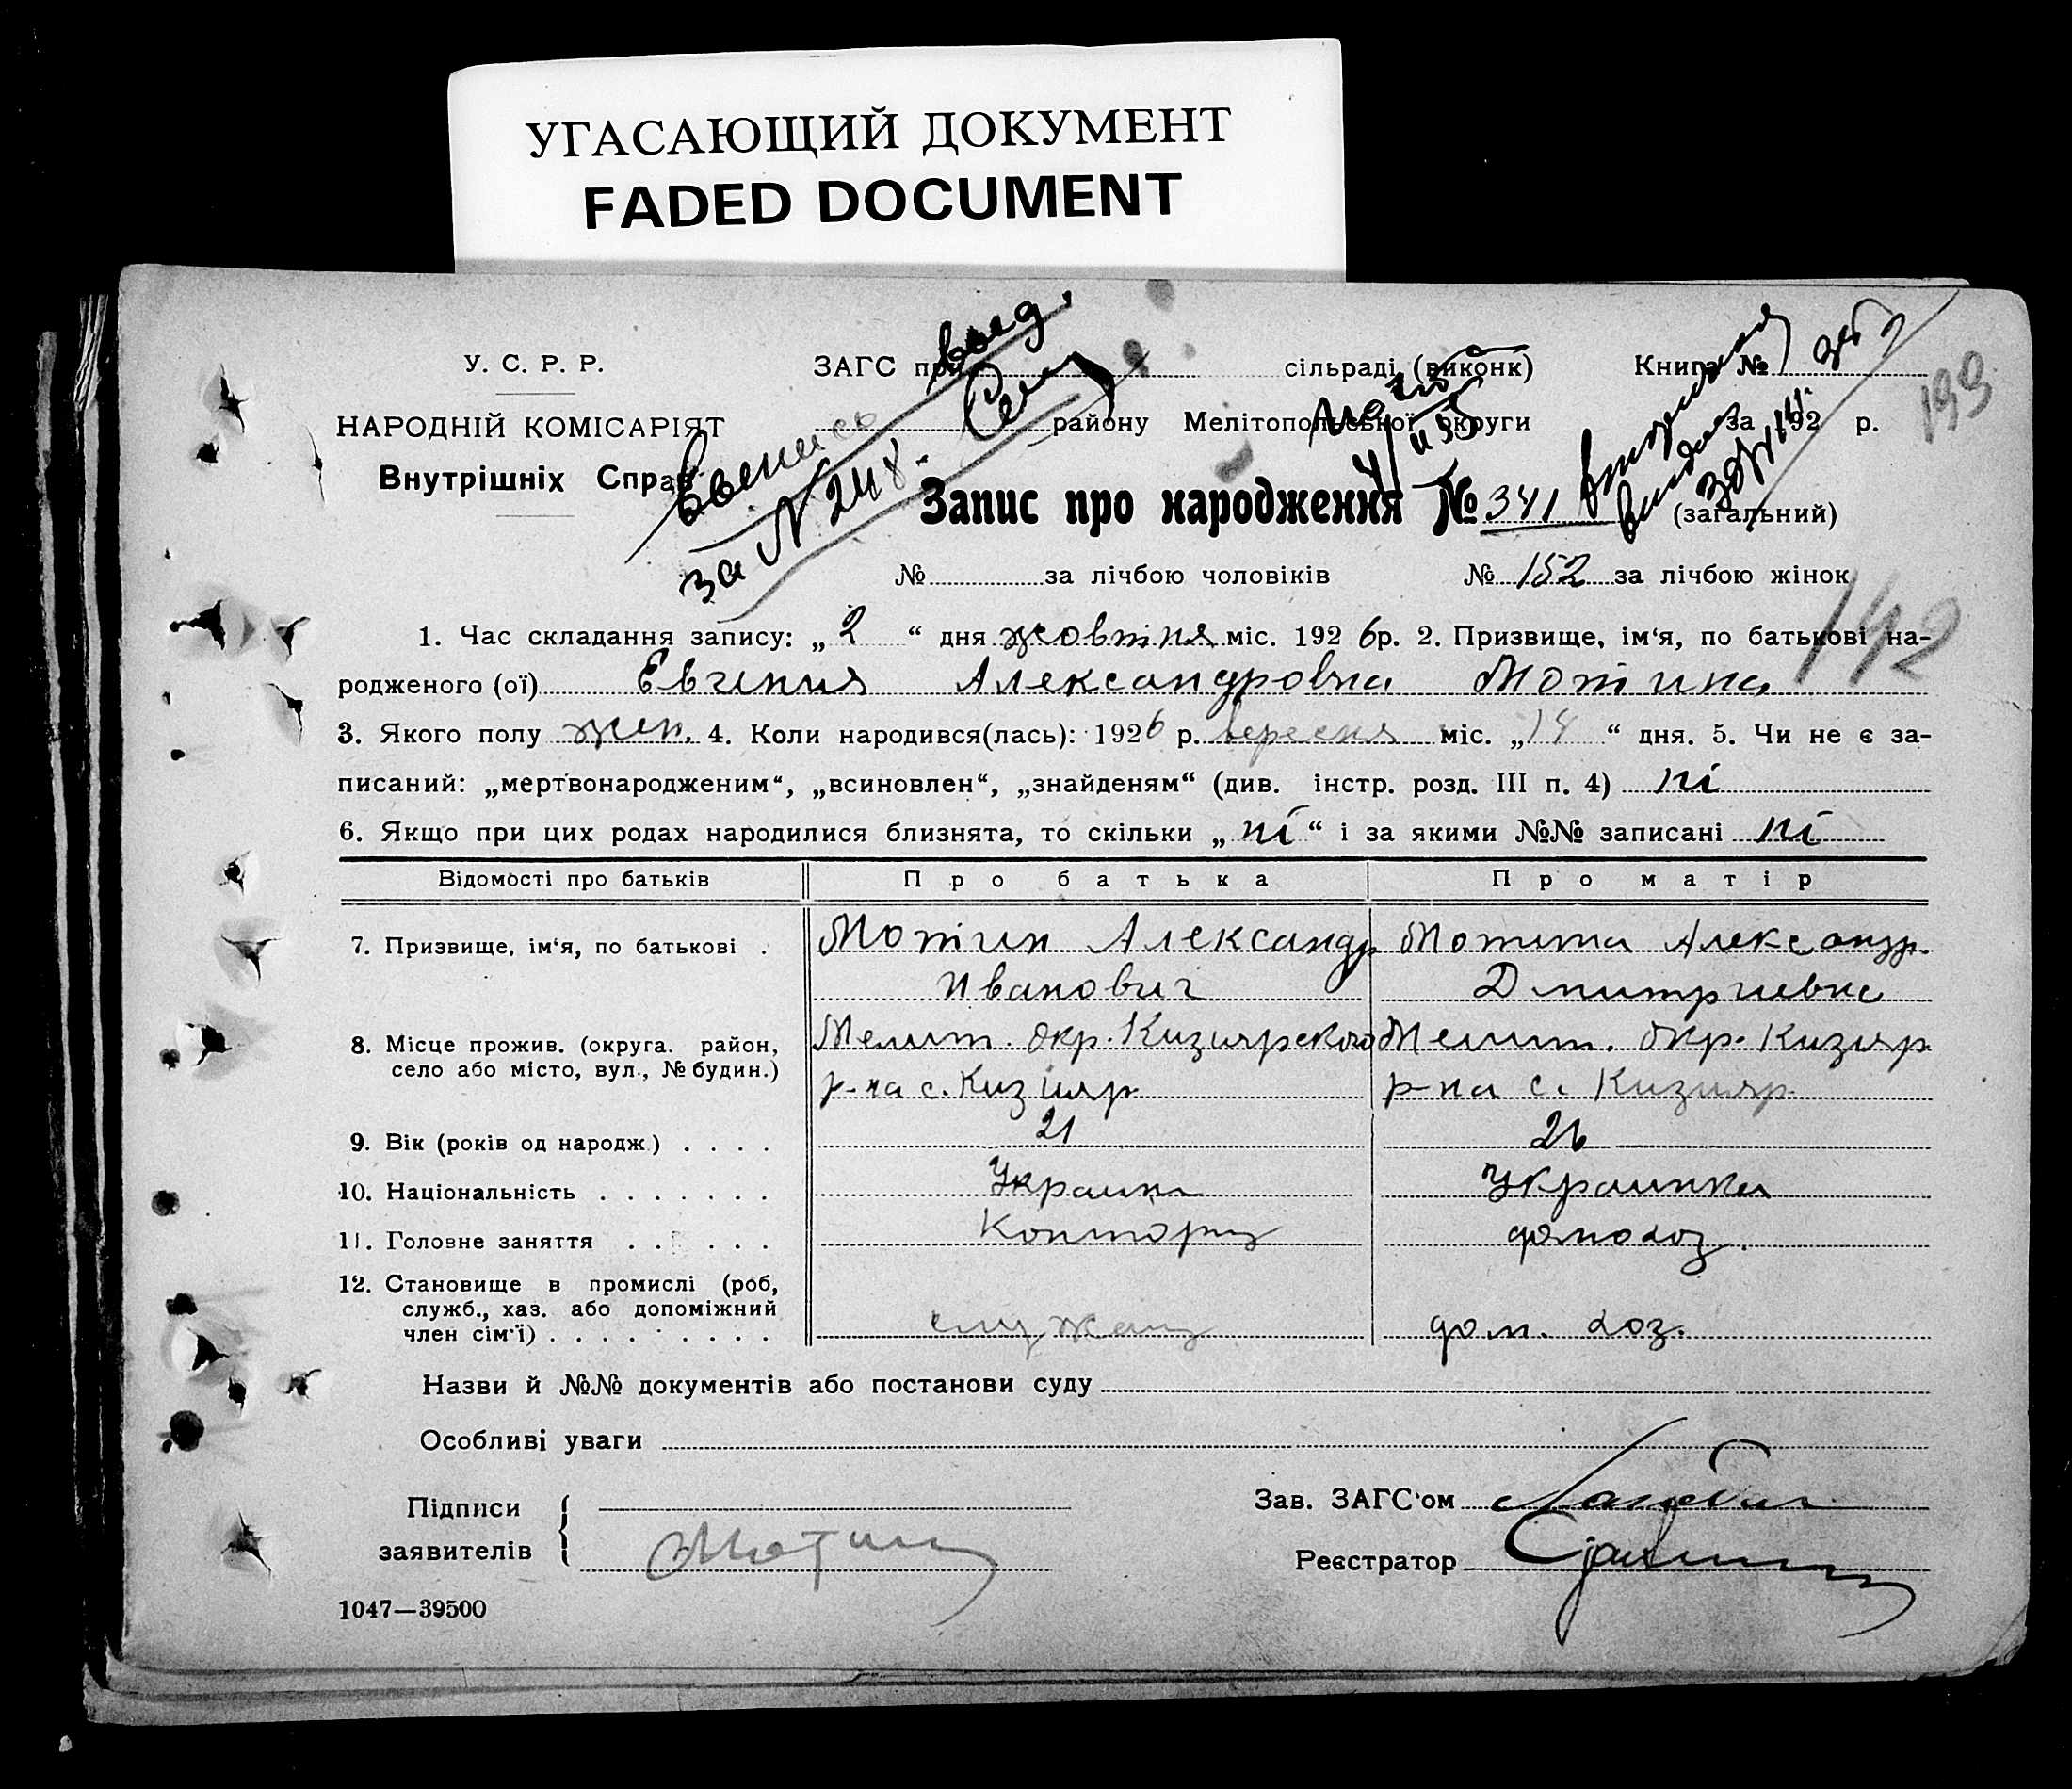 УГАСАЮЩИЙ ДОКУМЕНТ
FADED DOCUMENT
У. С. Р. Р.
НАРОДНІЙ КОМІСАРІЯТ
Внутрішніх Справ
ЗАГС при сільраді (виконк)
району Мелітопольської округи
Книга №
за 192 р.
199
за N 248.
Запис про народження № 341 (загальний)
№ за лічбою чоловіків № 152 за лічбою жінок
142
1. Час складання запису: „ 2 “ дня жовтня міс. 192 6 р. 2. Призвище, ім‘я, по батькові на-
родженого (ої) Евгения Александровна Мотина
3. Якого полу жен. 4. Коли народився(лась): 192 6 р. вересня міс. „ 14 “ дня. 5. Чи не є за-
писаний: „мертвонародженим“, „всиновлен“, „знайденям“ (див. інстр. розд. III п. 4) ні
6. Якщо при цих родах народилися близнята, то скільки „ ні “ і за якими №№ записані ні
Відомості про батьків Про батька Про матір
7. Призвище, ім‘я, по батькові . Мотин Александр Мотина Александр.
Иванович Дмитриевна
8. Місце прожив. (округа. район, Мелит. окр. Кизиярского Мелит. окр. Кизияр
село або місто, вул., № будин.) р-на с. Кизияр р-на с. Кизияр
9. Вік (років од народж.) . . . . 21 26
10. Національність . . . . . . . Украин Украинка
11. Головне заняття . . . . . . Конторщ домохоз.
12. Становище в промислі (роб,
служб., хаз. або допоміжний
член сім‘ї) . . . . . . . . . служащ дом. хоз.
Назви й №№ документів або постанови суду
Особливі уваги
Підписи
заявителів Мотин
Зав. ЗАГС‘ом
Реєстратор
1047—39500